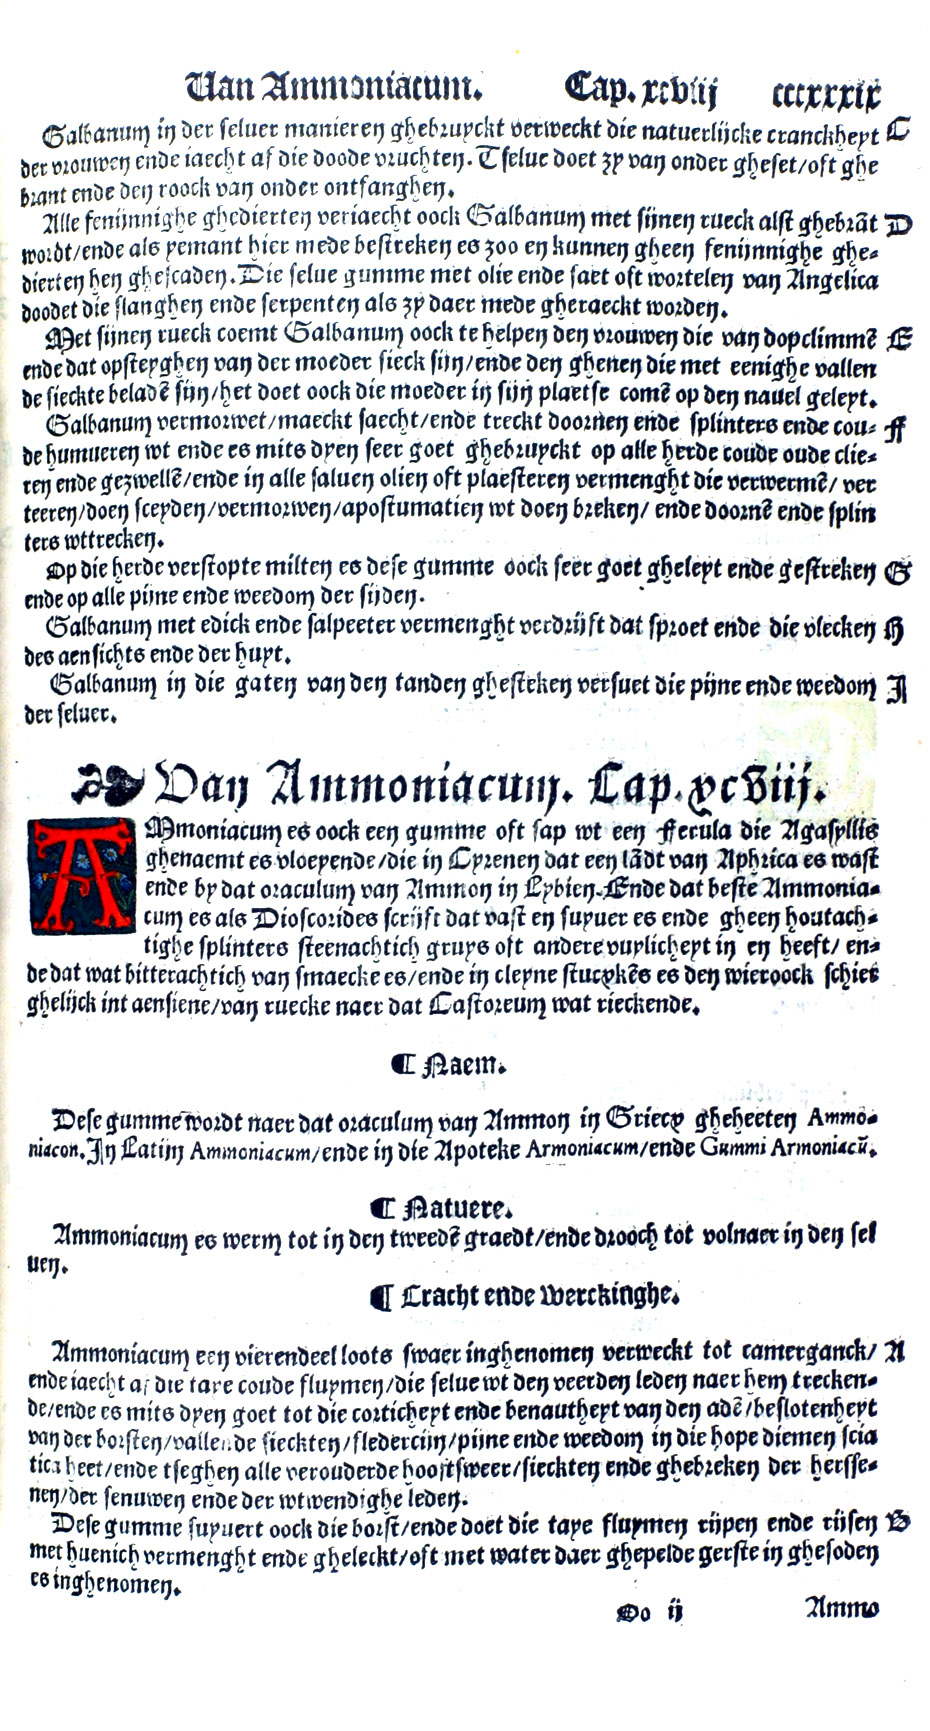 Van Ammoniacum. Cap. xcviij cccxxxix
Galbanum in der seluer manieren ghebruyckt verweckt die natuerlijcke cranckheyt C
der vrouwen ende iaecht af die doode vruchten. Tselue doet zy van onder gheset/oft ghe
brant ende den roock van onder ontfanghen.
Alle fenijnnighe ghedierten veriaecht oock Galbanum met sijnen rueck alst ghebrāt D
wordt/ende als yemant hier mede bestreken es zoo en kunnen gheen fenijnnighe ghe-
dierten hen ghescaden. Die selue gumme met olie ende saet oft wortelen van Angelica
doodet die slanghen ende serpenten als zy daer mede gheraeckt worden.
Met sijnen rueck coemt Galbanum oock te helpen den vrouwen die van dopclimmē E
ende dat opsteyghen van der moeder sieck sijn/ende den ghenen die met eenighe vallen
de sieckte beladē sijn/het doet oock die moeder in sijn plaetse comē op den nauel geleyt.
Galbanum vermorwet/maeckt saecht/ende treckt doornen ende splinters ende cou- F
de humueren wt ende es mits dyen seer goet ghebruyckt op alle herde coude oude clie-
ren ende gezwellē/ende in alle saluen olien oft plaesteren vermenght die verwermē/ ver
teeren/doen sceyden/vermorwen/apostumatien wt doen breken/ ende doornē ende splin
ters wttrecken.
Op die herde verstopte milten es dese gumme oock seer goet gheleyt ende gestreken G
ende op alle pijne ende weedom der sijden.
Galbanum met edick ende salpeeter vermenght verdrijft dat sproet ende die vlecken H
des aensichts ende der huyt.
Galbanum in die gaten van den tanden ghesteken versuet die pijne ende weedom I
der seluer.
Van Ammoniacum. Cap. xcviij.
AMmoniacum es oock een gumme oft sap wt een Ferula die Agasyllis
ghenaemt es vloeyende/die in Cyrenen dat een lādt van Aphrica es wast
ende by dat oraculum van Ammon in Lybien. Ende dat beste Ammonia-
cum es als Dioscorides scrijft dat vast en suyuer es ende gheen houtach-
tighe splinters steenachtich gruys oft andere vuylicheyt in en heeft/ en-
de dat wat bitterachtich van smaecke es/ende in cleyne stucxkēs es den wieroock schier
ghelijck int aensiene/van ruecke naer dat Castoreum wat rieckende.
¶ Naem.
Dese gumme wordt naer dat oraculum van Ammon in Griecx gheheeten Ammo-
niacon. In Latijn Ammoniacum/ende in die Apoteke Armoniacum/ende Gummi Armoniacū.
¶ Natuere.
Ammoniacum es werm tot in den tweedē graedt/ende drooch tot volnaer in den sel
uen.
¶ Cracht ende Werckinghe.
Ammoniacum een vierendeel loots swaer inghenomen verweckt tot camerganck/ A
ende iaecht af die taye coude fluymen/die selue wt den veerden leden naer hem trecken-
de/ende es mits dyen goet tot die corticheyt ende benautheyt van den adē/beslotenheyt
van der borsten/vallende sieckten/fledercijn/pijne ende weedom in die hope diemen scia
tica heet/ende tseghen alle verouderde hooftsweer/sieckten ende ghebreken der hersse-
nen/der senuwen ende der wtwendighe leden.
Dese gumme suyuert oock die borst/ende doet die taye fluymen rijpen ende rijsen B
met huenich vermenght ende gheleckt/oft met water daer ghepelde gerste in ghesoden
es inghenomen.
Oo ij Ammo